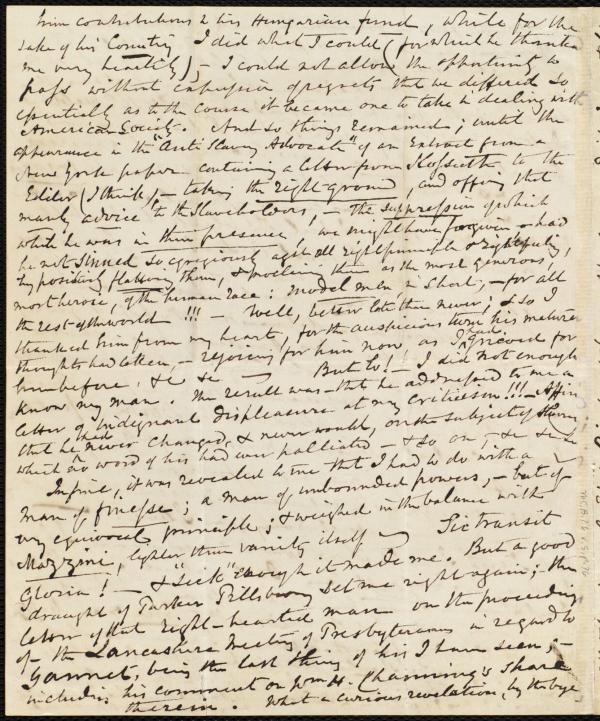 him contributions to his Hungarian fund, while for the
sake of his Country I did what I could (for which he thanked
me very heartily), - I could not allow the opportunity to
pass without expression of regrets that we differed so
essentially as to the course it became one to take in dealing with
American Society. And so things remained; until the
appearance in the "Anti Slavery Advocate" of an Extract from a
New York paper containing a letter from Kossuth to the
Editor (I think), - taking the right ground, and offering that
manly advice to the Slaveholders, - the suppression of which
while he was in their presence, we might have forgiven - had
he not sinned so egregiously agst all right principle & right feeling,
by positively flattering them, & proclaiming them as the most generous,
most heroic, of the human race: model men in short, - for all
the rest of the world !!! - Well, better late than never; & so I
thanked him from my heart, for the auspicious turn his maturer
thoughts had taken, - rejoicing for him now as I had grieved for
him before, &c &c - But Lo! - I did not enough
know my man. The result was that he addressed to me a
letter of indignant displeasure at my criticism!!! - Affirming
that he had never changed, & never would, on the subject of Slavery
which no word of his had ever palliated - & so on, &c &c
In fine, it was revealed to me that I had to do with a
man of finesse; a man of unbounded powers, - but of
very equivocal principle; & weighed in the balance with
Mazzini, lighter than vanity itself - Sic transit
Gloria! - & "Sick" enough it made me. But a good
draught of Parker Pillsbury set me right again; - the
letter of that right-hearted man on the proceedings
of the Lancashire Meeting of Presbyterians in regard to
Gannet, being the last thing of his I have seen; -
including his comment on Wm H. Channing's share
therein. What a curious revelation, by the bye